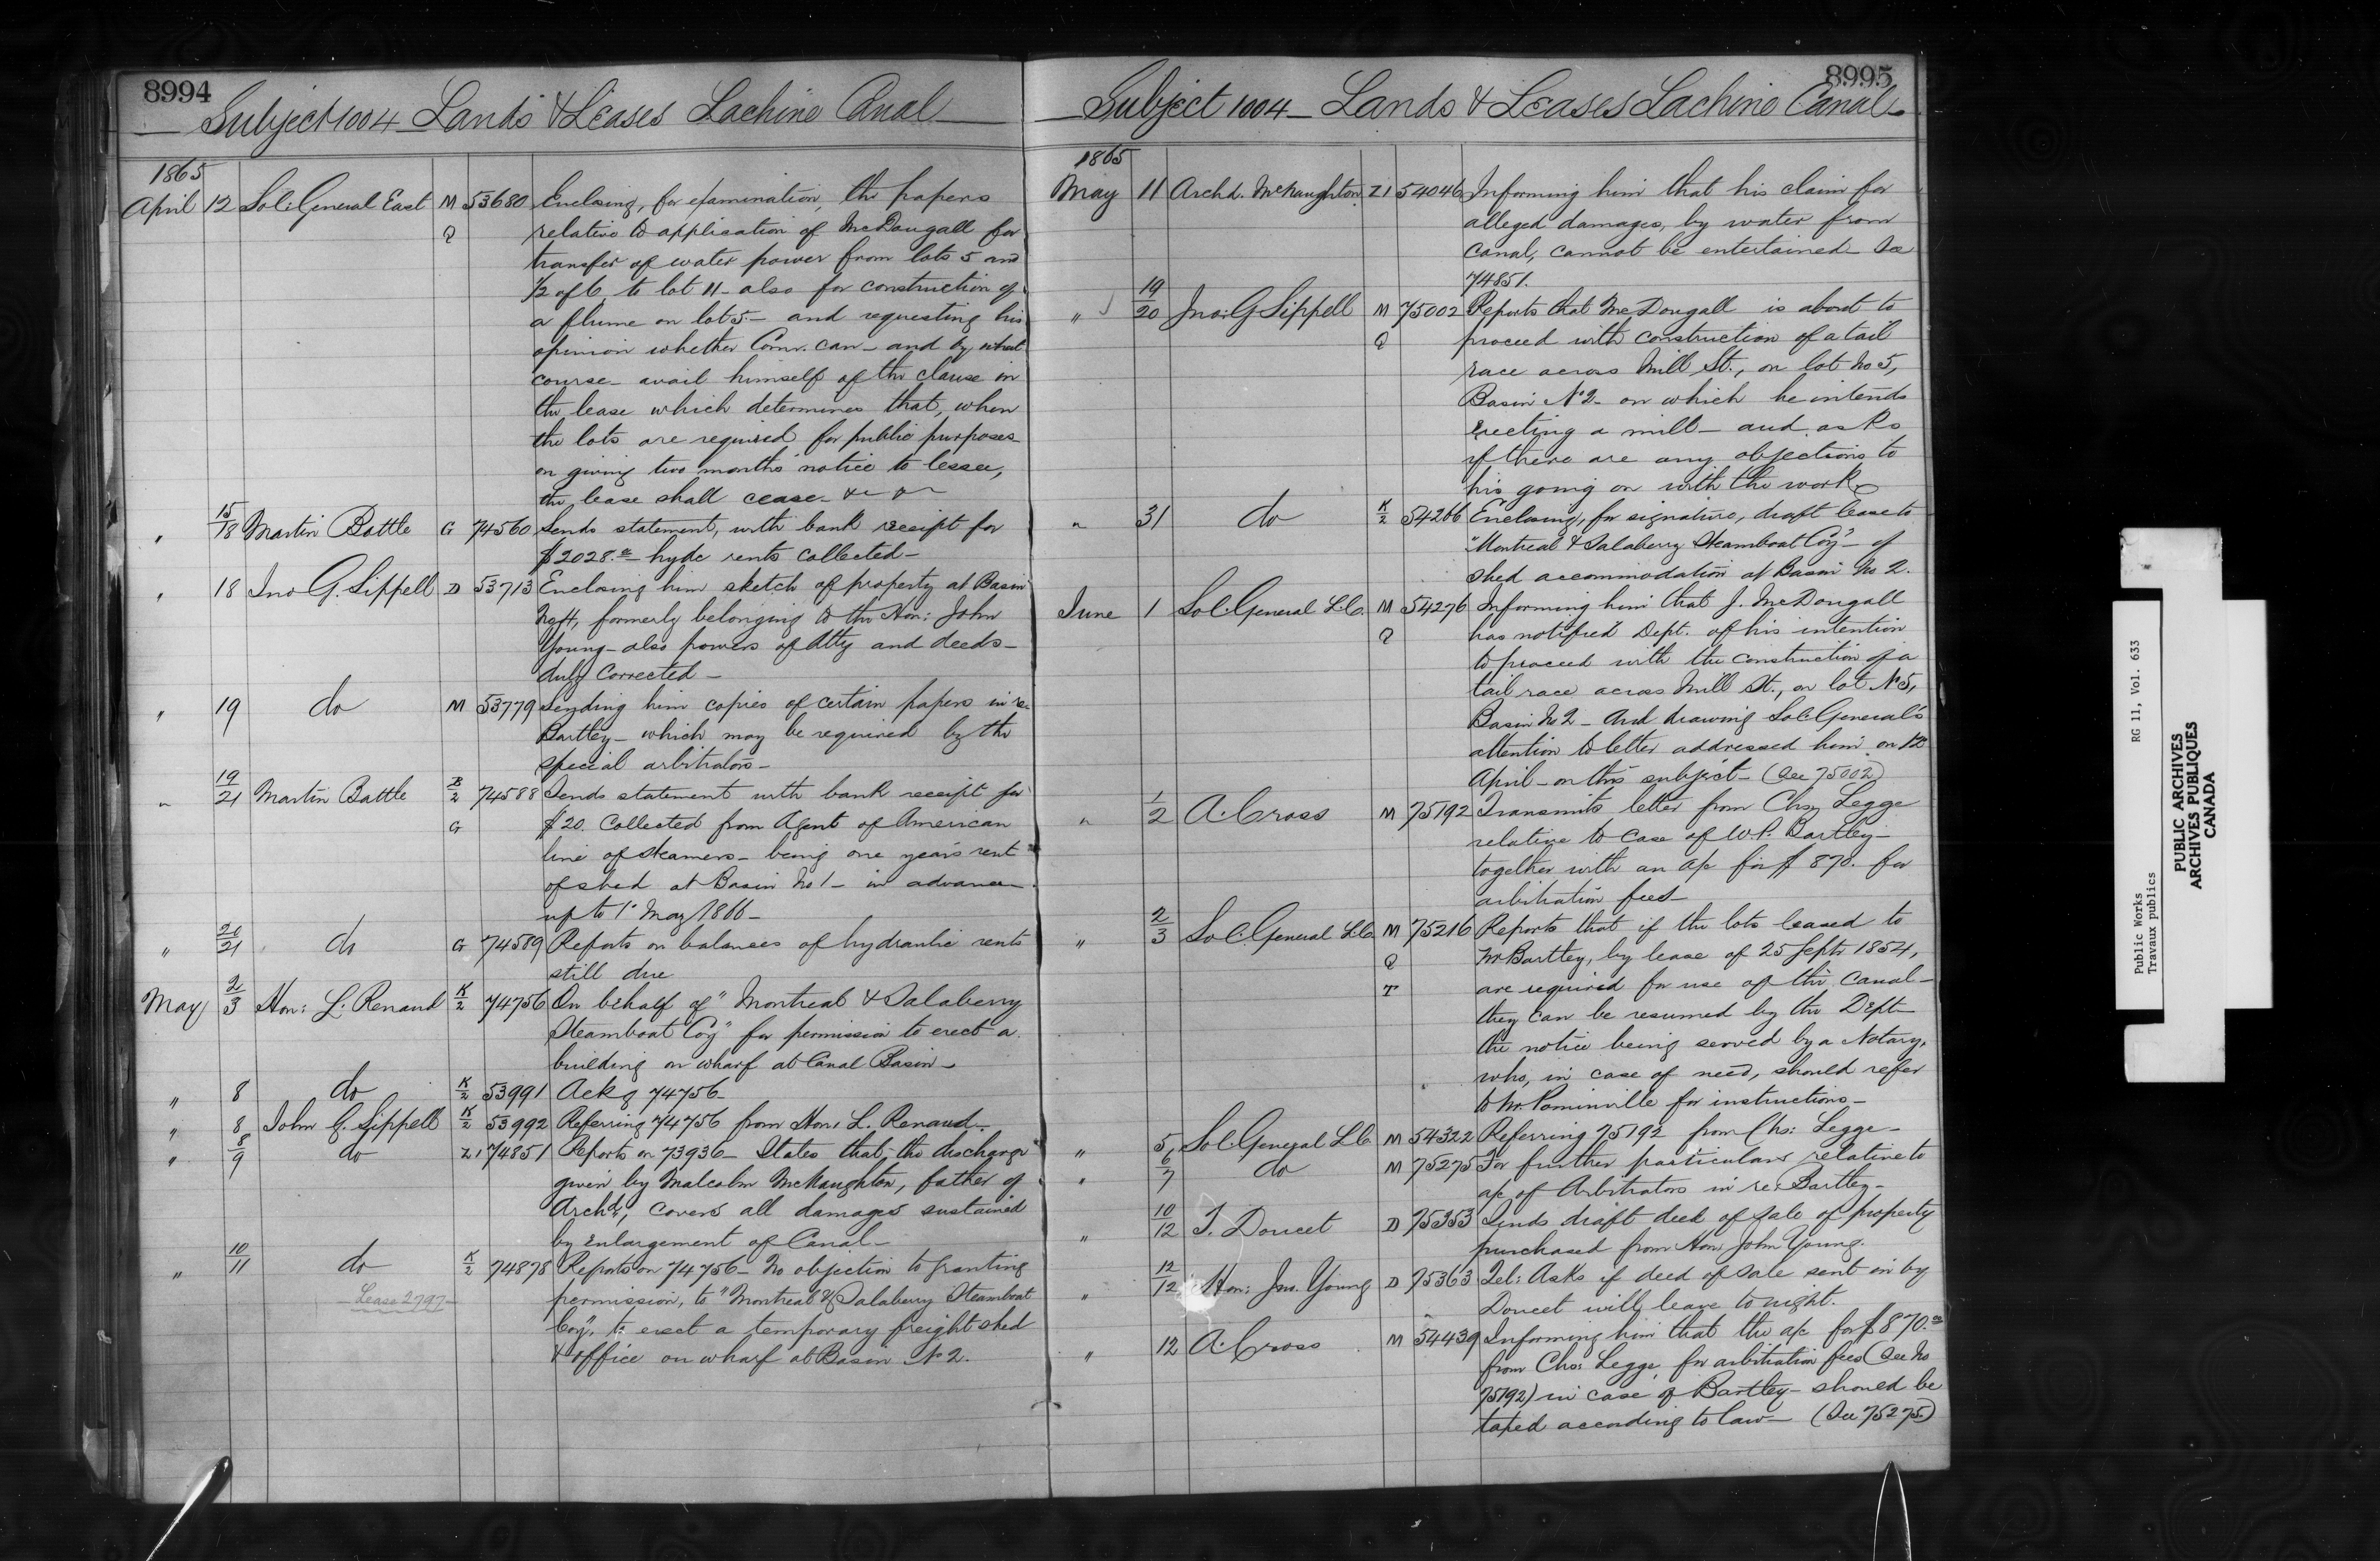 8994
Subject 1004 - Lands & Leases Lachine Canal
1865
April 12 Sol: General East M 53680 Enclosing, for examination, the papers
Q relative to application of McDougall for
transfer of water power from lots 5 and
1/2 of 6, to lot 11 - also for construction of
a flume on lot 5 - and requesting his
opinion whether Comr. can - and by what
course - avail himself of the clause in
the lease which determines that, when
the lots are required for public purposes -
on giving two months' notice to lessee,
the lease shall cease - &c &c
" 15/18 Martin Battle G 74560 Sends statement, with bank receipt for
$2028.- hydc rents collected -
" 18 Jno G. Sippell D 53713 Enclosing him sketch of property at Basin
No 4, formerly belonging to the Hon: John
Young - also powers of Atty and deeds -
duly corrected -
" 19 do M 53779 Sending him copies of certain papers in re
Bartley - which may be required by the
special arbitrators -
" 19/21 Martin Battle B/2 74588 Sends statement with bank receipt for
G $20. Collected from Agent of American
line of steamers - being one year's rent
of shed at Basin No 1 - in advance -
up to 1st May 1866 -
" 20/21 do G 74589 Reports on balances of hydraulic rents
still due
May 2/3 Hon: L. Renaud K/2 74756 On behalf of "Montreal & Salaberry
Steamboat Coy" for permission to erect a
building on wharf at Canal Basin -
" 8 do K/2 53991 Ackg 74756 -
" 8 John G. Sippell K/2 53992 Referring 74756 from Hon: L. Renaud -
" 8/9 do Z1 74851 Reports on 73936 - States that the discharge
given by Malcolm McNaughton, father of
Archd, covers all damages sustained
by Enlargement of Canal -
" 10/11 do K/2 74878 Reports on 74756 - No objection to granting
Lease 2797 permission, to "Montreal & Salaberry Steamboat
Coy", to erect a temporary freight shed
& office on wharf at Basin No 2.
8995
Subject 1004 - Lands & Leases Lachine Canal -
1865
May 11 Archd. McNaughton Z1 54046 Informing him that his claim for
alleged damages, by water from
Canal, cannot be entertained - See
74851.
" 19/20 Jno: G Sippell M 75002 Reports that McDougall is about to
Q proceed with construction of a tail
race across Mill St., on lot No 5,
Basin No 2 - on which he intends
erecting a mill - and asks
if there are any objections to
his going on with the work -
" 31 do K/2 54266 Enclosing, for signature, draft lease to
"Montreal & Salaberry Steamboat Coy" - of
shed accommodation at Basin No 2.
June 1 Sol: General L.C. M 54276 Informing him that J. McDougall
Q has notified Dept. of his intention
to proceed with the construction of a
tail race across Mill St., on lot No 5,
Basin No 2 - And drawing Sol: General's
attention to letter addressed him on 12
April - on this subject - (See 75002)
" 1/2 A. Cross M 75192 Transmits letter from Chs Legge
relative to case of W.P. Bartley -
together with an a/c for $870. for
arbitration fees -
" 2/3 Sol: General L.C. M 75216 Reports that if the lots leased to
Q Mr Bartley, by lease of 25 Septr 1854,
T are required for use of the Canal -
they can be resumed by the Dept -
the notice being served by a Notary,
who, in case of need, should refer
to Mr. Pominville for instructions -
" 5 Sol: General L.C. M 54322 Referring 75192 from Chs: Legge -
" 6/7 do M 75275 For further particulars relative to
a/c of Arbitrators in re: Bartley -
" 10/12 T. Doucet D 75353 Sends draft deed of sale of property
purchased from Hon. John Young.
" 12/12 Hon: Jno. Young D 75363 Tel: Asks if deed of sale sent in by
Doucet will leave to night.
" 12 A. Cross M 54439 Informing him that the a/c for $870.00
from Chs: Legge, for arbitration fees (See No
75192) in case of Bartley - should be
taxed according to law - (See 75275)
Public Works
Travaux publics
RG 11, Vol. 633
PUBLIC ARCHIVES
ARCHIVES PUBLIQUES
CANADA